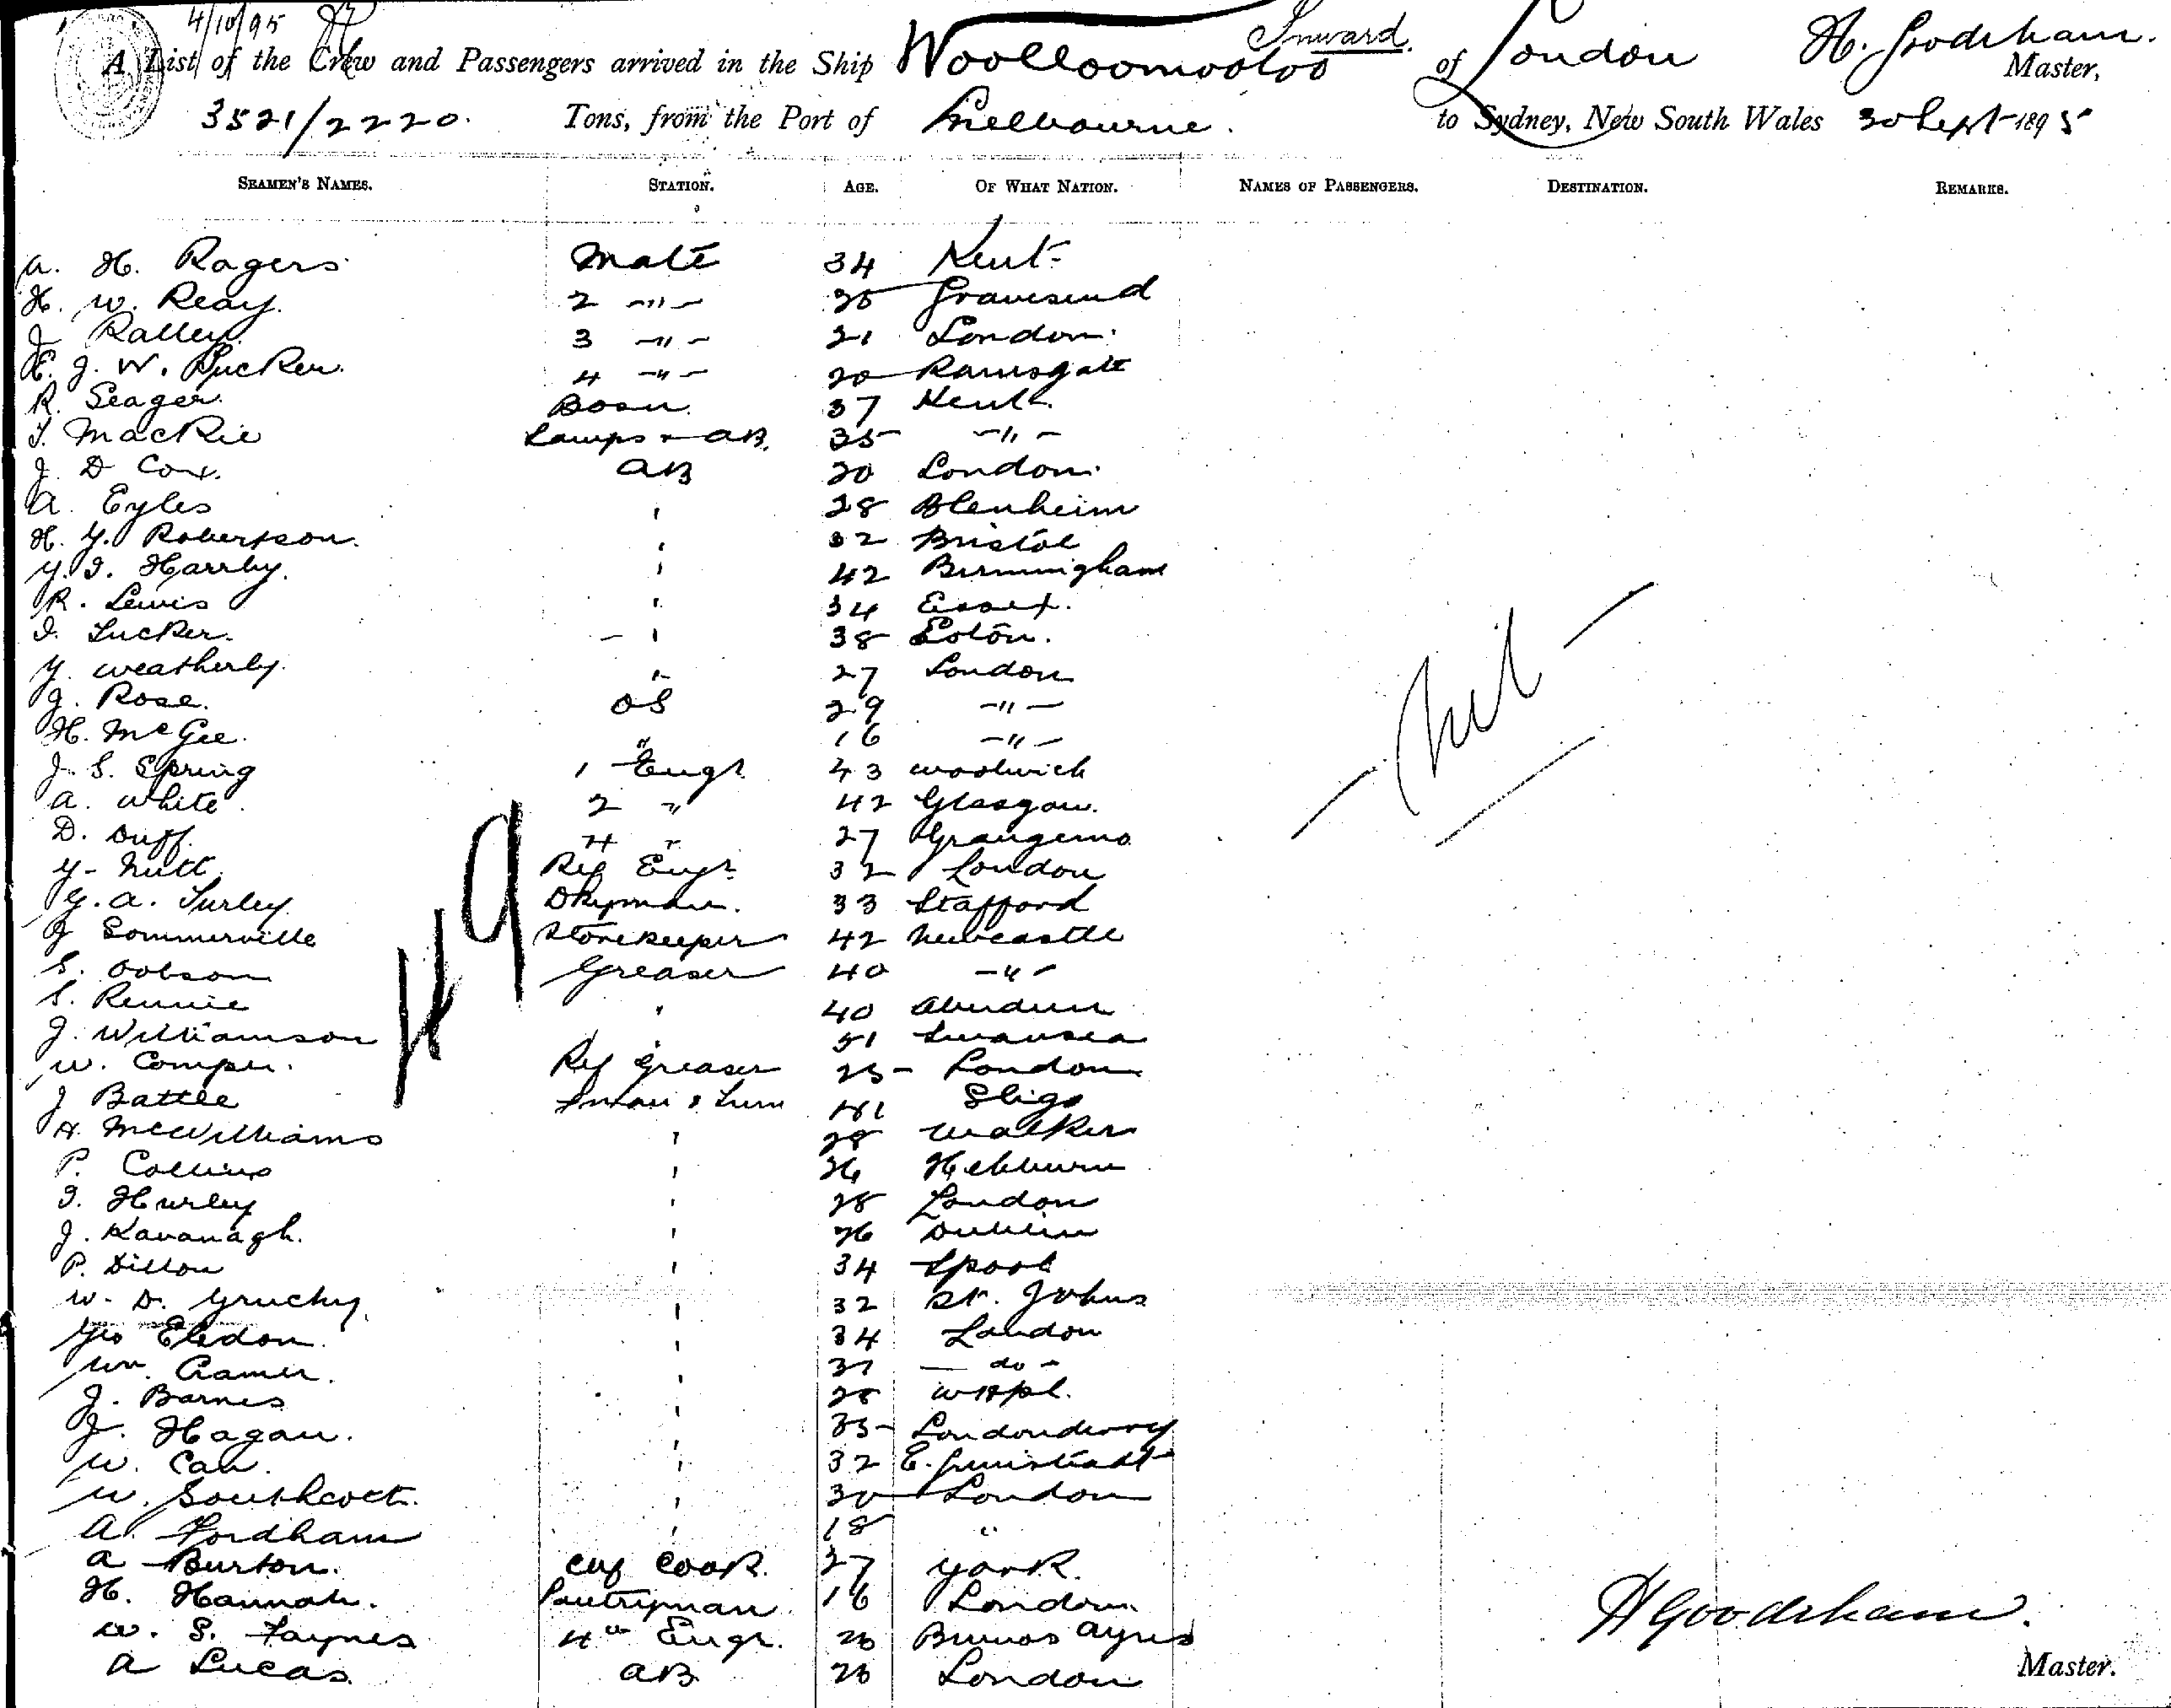 4/10/95
Inward.
A List of the Crew and Passengers arrived in the Ship Woolloomooloo of London H. Gooderham. Master,
3521/2220. Tons, from the Port of Melbourne. to Sydney, New South Wales 30 Sept 1895
SEAMEN'S NAMES. STATION. AGE. OF WHAT NATION. NAMES OF PASSENGERS. DESTINATION. REMARKS.
A. H. Rogers Mate 34 Kent
H. W. Reay. 2 -"- Gravesend
J Ralley 3 -"- 21 London
J. W. 4 -"- 20 Ramsgate
R. Seager. Bosn. 37 Kent.
T. MacKie Lamps & AB. 35 -"-
J. D Cox. AB 20 London
A. Eyles " 28 Blenheim
H. Y. Robertson. " 32 Bristol
" 42 Birmingham
R. Lewis " 34 Essex.
" 38
Y. Weatherby. " 27 London
J. Rose. OS 29 -"-
H. McGee. " 16 -"-
J. S. Spring 1 Engr. 43 Woolwich
A. White. 2 " 42 Glasgow.
D. Duff. 4 " 27
Nutt. Ref Engr. 32 London
G. A. Turley Dkyman. 33 Stafford
J Sommerville Storekeeper 42 Newcastle
S. Dobson Greaser 40 -"-
S. Rennie " 40 Aberdeen
J. Williamson 51 Swansea
W. Comper. Ref Greaser 25 London
J Battle Fman & Trim 41 Sligo
A. McWilliams " 28 Walker
P. Collins " Hebburn
Hurley " 28 London
J. Kavanagh. " Dublin
P. Dillon " 34 Lpool
W. D. Gruchy. " 32 St. Johns
Geo Eledon. " 34 London
Wm. Cramer. " - do -
J. Barnes " 28 WHpl.
J. Hagan. " 35 Londonderry
W. " 32 E. Grinstead
W. Southcott. " 30 London
A. Fordham " 18 "
A Burton. Cook. 27 York.
H. Hannah. Pantryman 16 London
W. S. Faynes 4th Engr. 26 Buenos Ayres
A Lucas. AB. 26 London
49
- Nil -
H Gooderham.
Master.